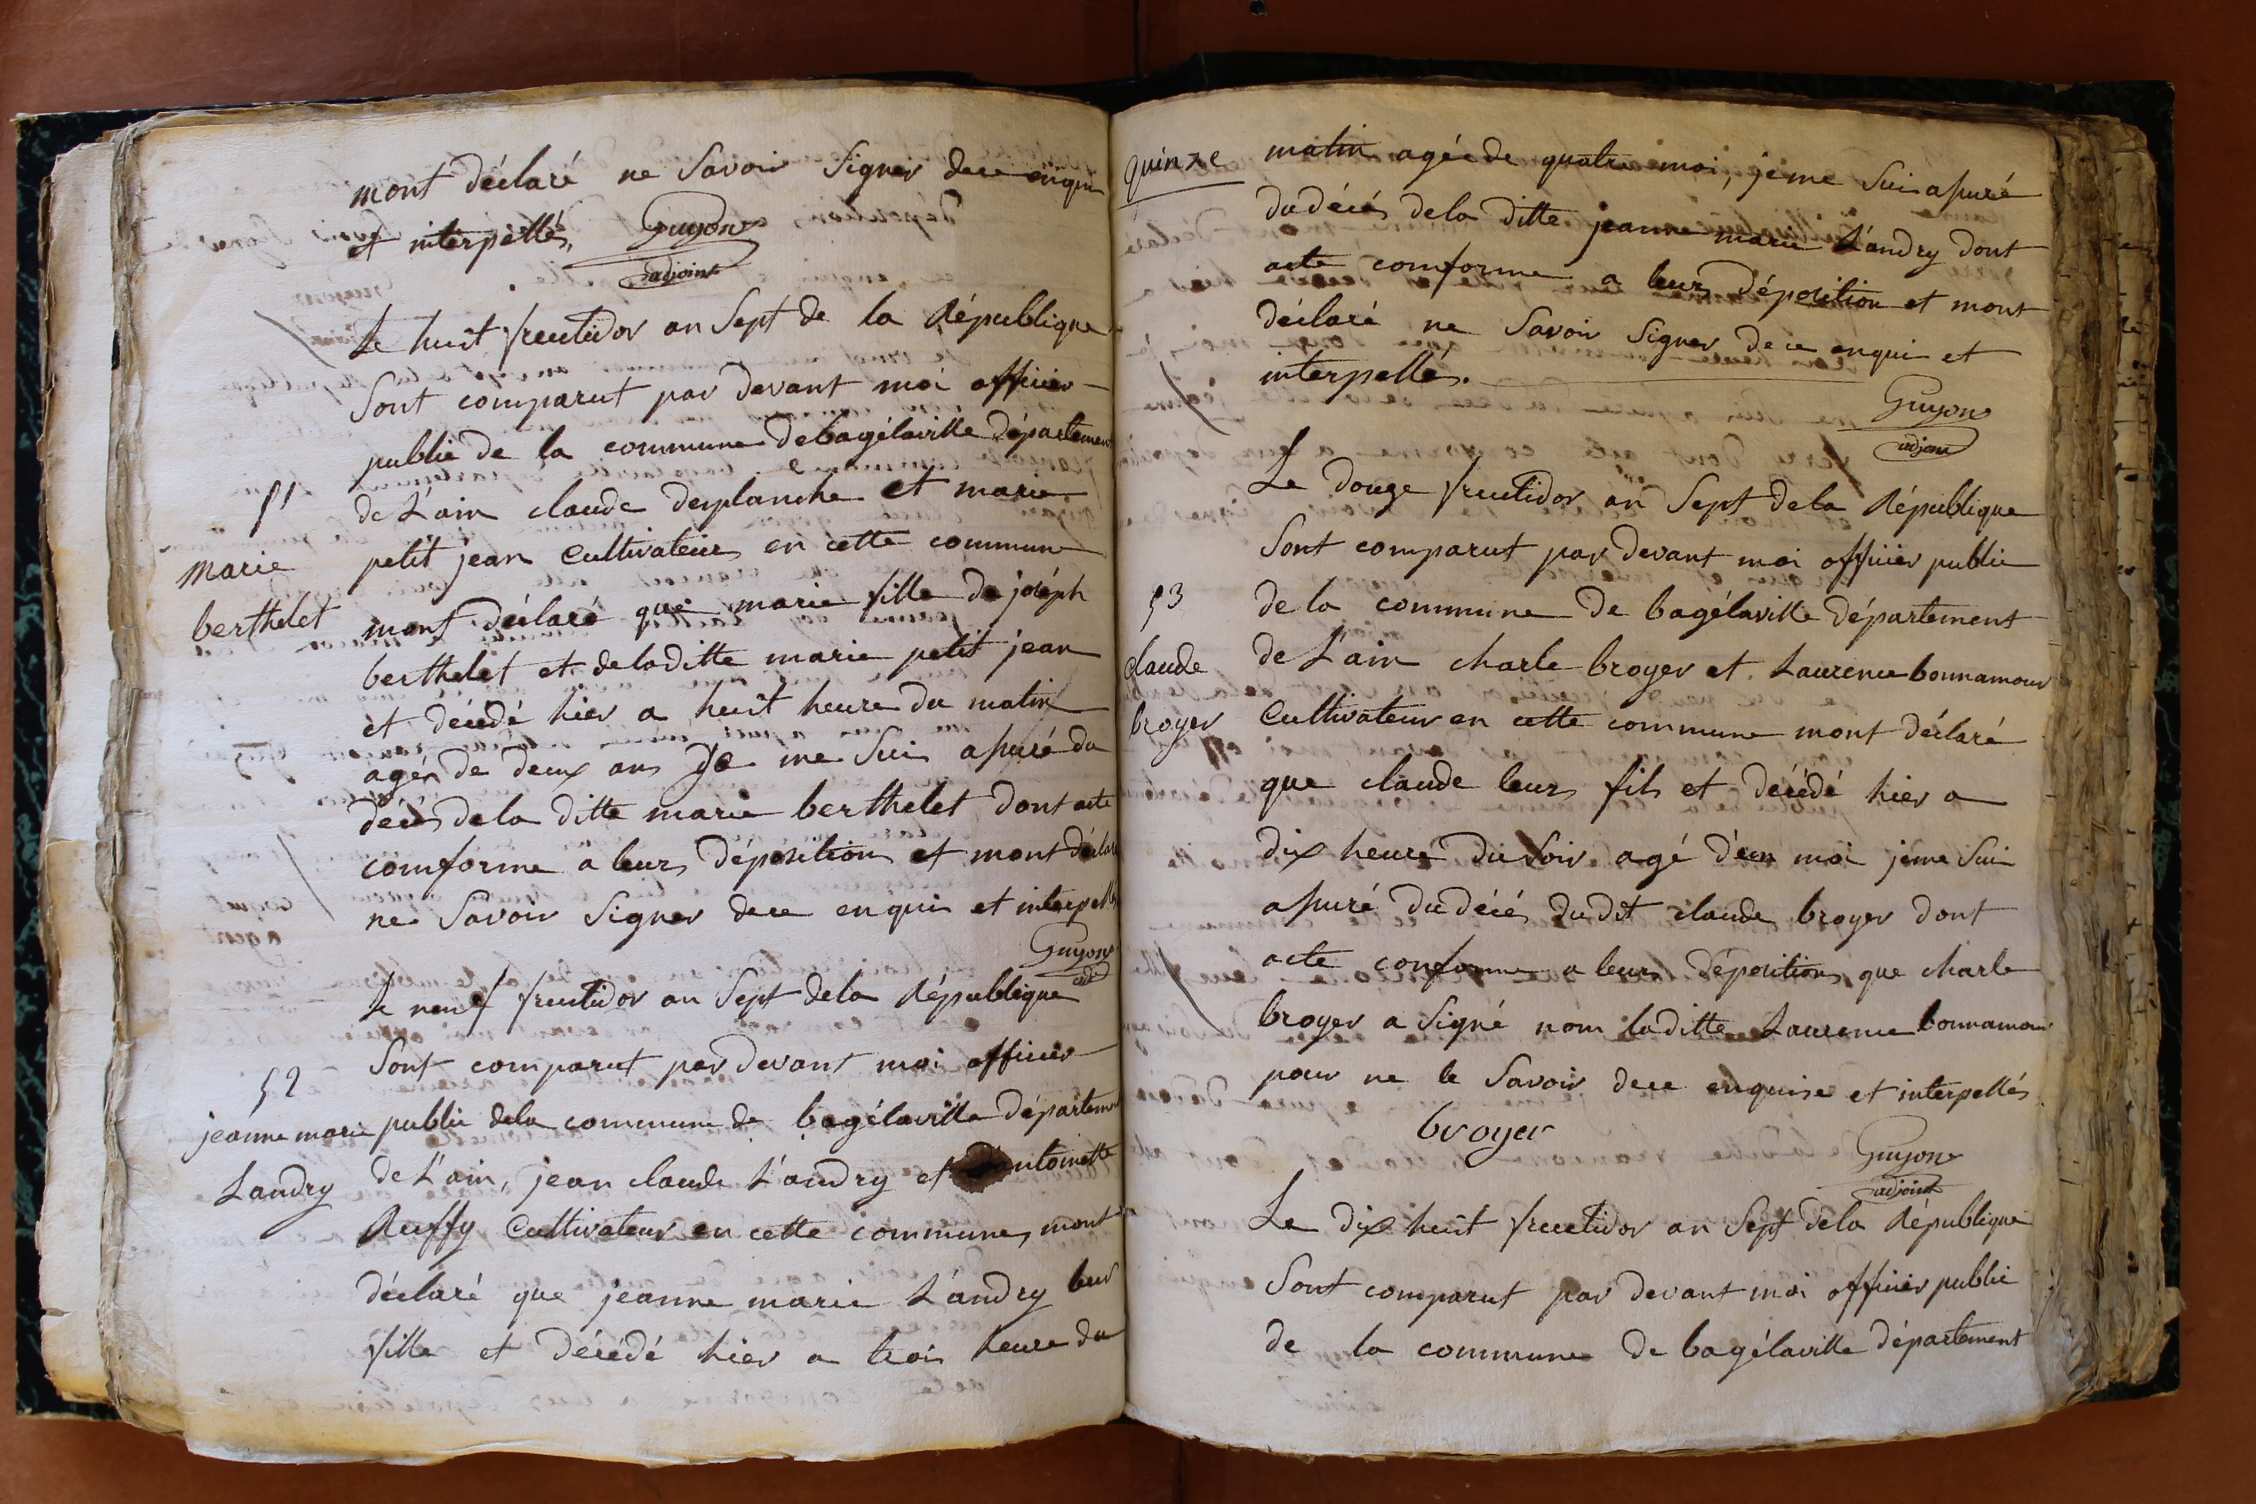 mont déclaré ne Savoir Signer dece enqui
et interpellés, Guyon
adjoint
Le huit fructidor an Sept de la République
Sont comparut par devant moi officier
public de la commune debagélaville département
51
de L'ain claude desplanche et marie
marie
petit jean Cultivateurs en cette commune
berthelet
mont déclaré que marie fille de joséph
berthelet et deladitte marie petit jean
et décédé hier a huit heure du matin
agée de deux ans Je me Suis apuré du
décés dela ditte marie berthelet dont acte
comforme a leurs déposition et mont déclaré
ne Savoir Signer dece enquis et interpellés
Guyon
adj
Le neuf fructidor an Sept dela République
Sont comparut par devant moi officier
52
jeanne marie
public dela commune de bagélaville département
Landry
de L'ain, jean claude L'andry et antoinette
Ruffy Cultivateur en cette commune, mont
déclaré que jeanne marie L'andry leur
fille et décédé hier a trois heure du
quinze
matin agée de quatre moi, jeme Sui apuré
du décés dela ditte jeanne marie L'andry dont
acte comforme a leurs déposition et mont
déclaré ne Savoir Signer dece enqui et
interpellés.
Guyon
adjoint
Le douze fructidor an Sept dela République
Sont comparut par devant moi officier public
53
de la commune de bagélaville département
claude
de L'ain charle broyer et Laurence bonnamour
broyer
Cultivateur en cette commune mont déclaré
que claude leurs fils et décédé hier a
dix heure du Soir agé d'un moi jeme Sui
apuré du décés dudit claude broyer dont
acte conforme a leurs déposition que charle
broyer a Signé nom laditte Laurence bonnamour
pour ne le Savoir dece enquise et interpellés
broyer
Guyon
adjoint
Le dix huit fructidor an Sept dela République
Sont comparut par devant moi officier public
de la commune de bagélaville département